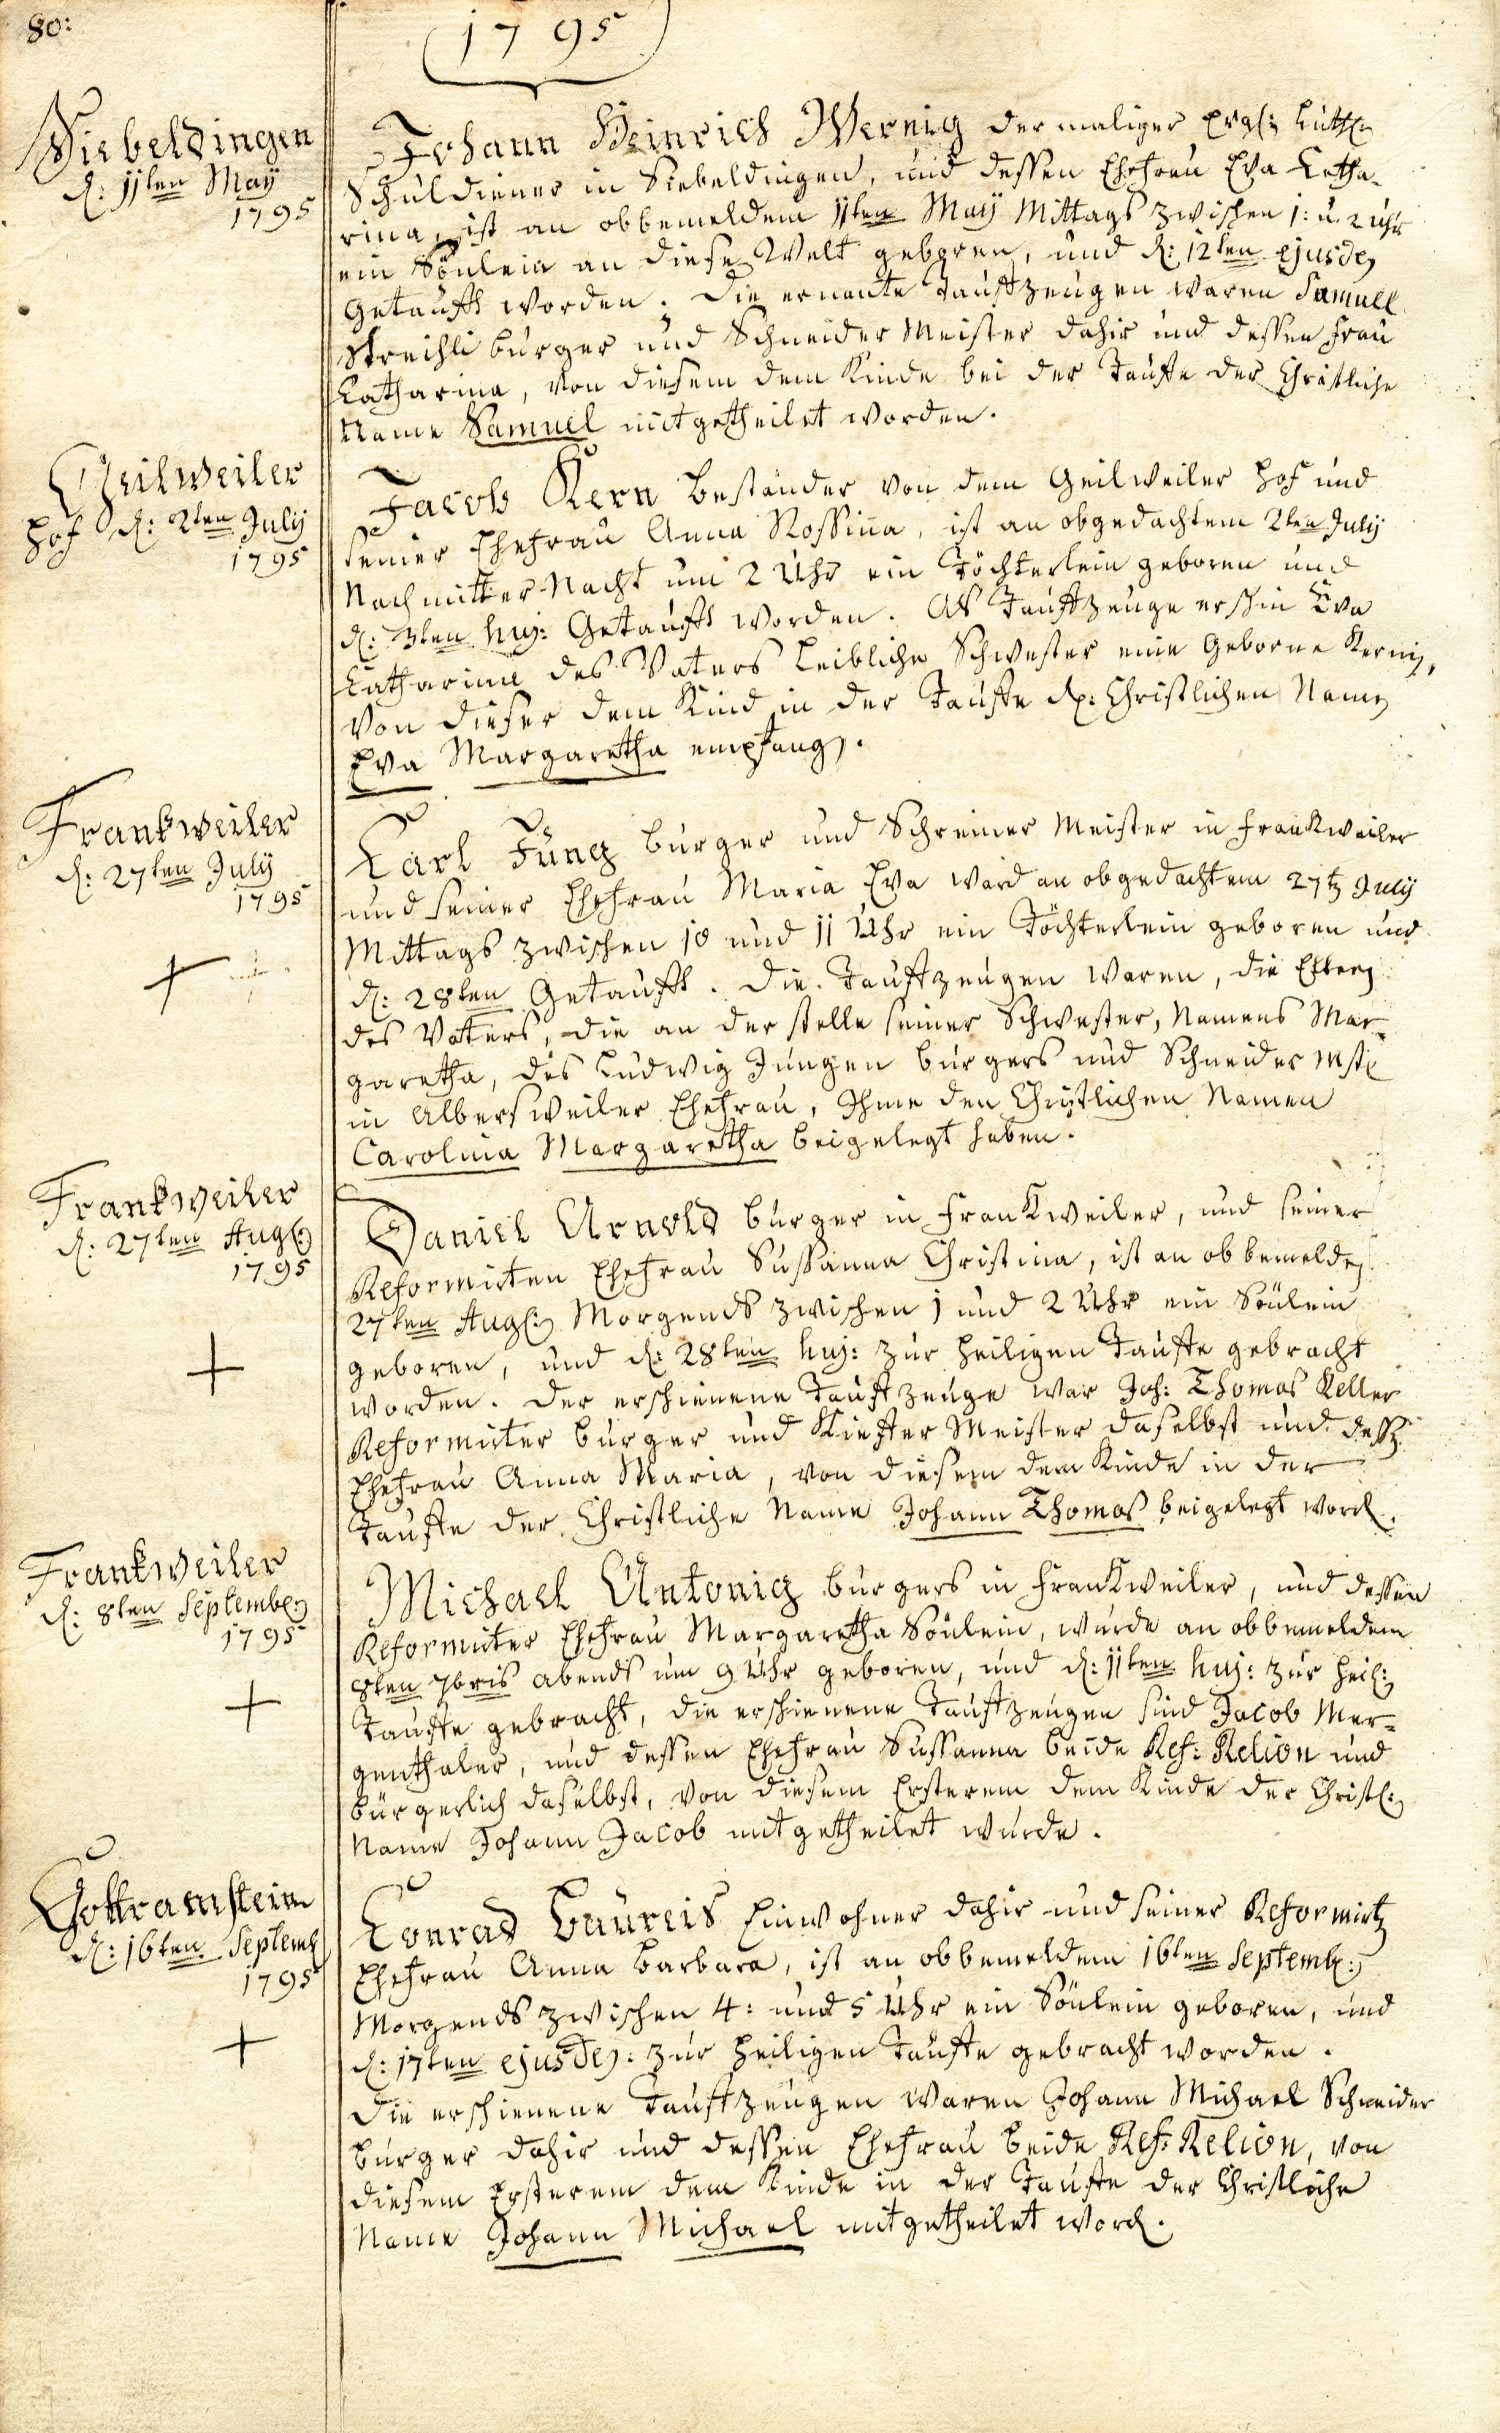 80:
1795
Siebeldingen
d: 11ten Maÿ
1795
Johann Heinrich Wernig der maliger Evgl: Luth:
Schuldiener in Siebeldingen, und dessen Ehefrau Eva Catha-
rina, ist an obbemeldem 11ten Maÿ Mittags zwischen 1: u. 2 Uhr
ein Sönlein an diese Welt geboren, und d: 12ten ejusdem
Getaufft worden. Die ernante Tauffzeugen waren Samuel
Streichli burger und Schneider Meister dahir und dessen Frau
Catharina, von diesem dem Kinde bei der Tauffe der Christliche
Name Samuel mitgetheilet worden.
Geilweiler
Hof d: 2ten Julÿ
1795
Jacob Kern Beständer von dem Geilweiler Hof und
seiner Ehefrau Anna Rossina, ist an obgedachtem 2ten Julÿ
Nach mitter-Nacht um 2 Uhr ein Töchterlein geboren und
d: 3ten huj: Getaufft worden. Als Tauffzeuge erschin Eva
Catharina des Vaters Leibliche Schwester eine Geborne Kernin,
Von dieser dem Kind in der Tauffe den Christlichen Namen
Eva Margaretha empfangen.
Frankweiler
d: 27ten Julÿ
1795
Carl Jung burger und Schreiner Meister in Frankweiler
und seiner Ehefrau Maria Eva ward an obgedachtem 27ten Julÿ
Mittags zwischen 10 und 11 Uhr ein Töchterlein geboren und
d: 28ten Getaufft. Die Tauffzeugen waren, die Eltern
des Vaters, die an der stelle seiner Schwester, Namens Mar-
garetha, des Ludwig Jungen burgers und Schneider Mstr
in Albersweiler Ehefrau, Ihme den Christlichen Namen
Carolina Margaretha beigelegt haben.
Frankweiler
d: 27ten Aug:
1795
Daniel Arnold burger in Frankweiler, und seiner
Reformirten Ehefrau Sussanna Christina, ist an obbemelden
27ten Aug: Morgends zwischen 1 und 2 Uhr ein Sönlein
geboren, und d: 28ten huj: zur Heiligen Tauffe gebracht
worden. Der erschienene Tauffzeuge war Joh: Thomas Keller
Reformirter burger und Kieffer Meister daselbst und dessen
Ehefrau Anna Maria, von diesem dem Kinde in der
Tauffe der Christliche Name Johann Thomas beigelegt word.
Frankweiler
d: 8ten Septemb:
1795
Michael Antonig burgers in Frankweiler, und dessen
Reformirter Ehefrau Margaretha Sönlein, wurde an obbemeldem
8ten 7bris abends um 9 Uhr geboren, und d: 11ten huj: zur Heil:
Tauffe gebracht, die erschienene Tauffzeugen sind Jacob Mer-
genthaler, und dessen Ehefrau Sussanna beide Ref: Relion und
bürgerlich daselbst, von diesem Ersterem dem Kinde der Christl:
Name Johann Jacob mitgetheilet wurde.
Gottramstein
d: 16ten Septemb
1795
Conrad Laureis Einwohner dahir und seiner Reformirten
Ehefrau Anna Barbara, ist an obbemeldem 16ten Septemb:
Morgends zwischen 4: und 5 Uhr ein Sönlein geboren, und
d: 17ten ejusdem: zur Heiligen Tauffe gebracht worden.
Die erschienene Tauffzeugen waren Johann Michael Schneider
burger dahir und dessen Ehefrau beide Ref: Relion, von
diesem Ersterem dem Kinde in der Tauffe der Christliche
Name Johann Michael mitgetheilet word.